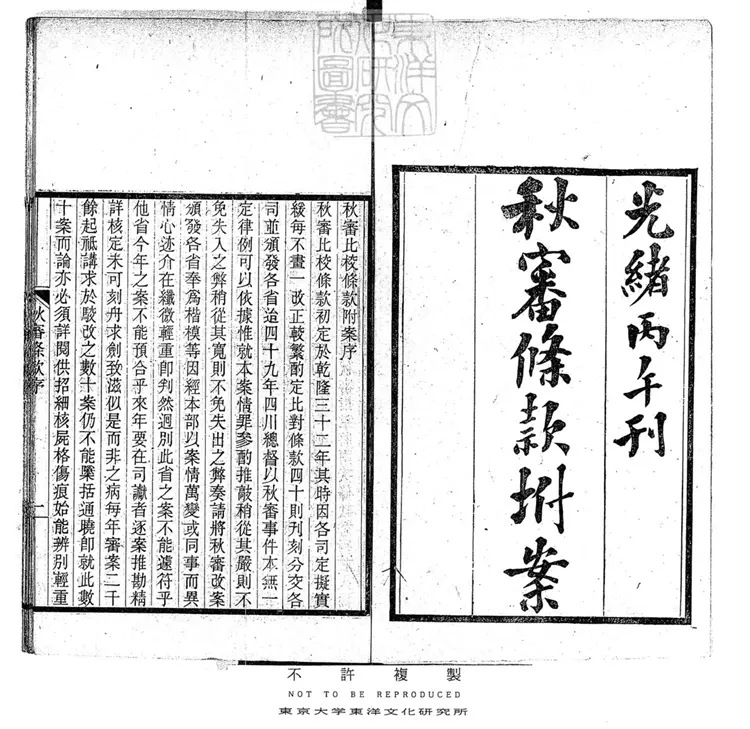 光緒丙午刊
秋審條款坿案
秋審比校條款附案序
秋審比校條款初定於乾隆三十二年其時因各司定擬實
緩每不畫一改正較繁酌定比對條款四十則刊刻分交各
司並頒發各省迨四十九年四川總督以秋審事件本無一
定律例可以依據惟就本案情罪參酌推敲稍從其嚴則不
免失入之弊稍從其寬則不免失出之弊奏請將秋審改案
頒發各省奉爲楷模等因經本部以案情萬變或同事而異
情心迹介在纖微輕重卽判然迥別此省之案不能遽符乎
他省今年之案不能預合乎來年要在司讞者逐案推勘精
詳核定未可刻舟求劍致滋似是而非之病每年審案二千
餘起祗講求於駁改之數十案仍不能檃括通曉卽就此數
十案而論亦必須詳閱供招細核屍格傷痕始能辨別輕重
秋審條款序
二
東洋文
化研究
所圖書
不許複製
NOT TO BE REPRODUCED
東京大学東洋文化研究所